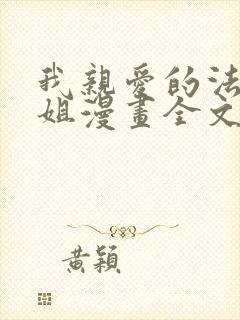 我親愛的法
姐漫畫全文
黃穎